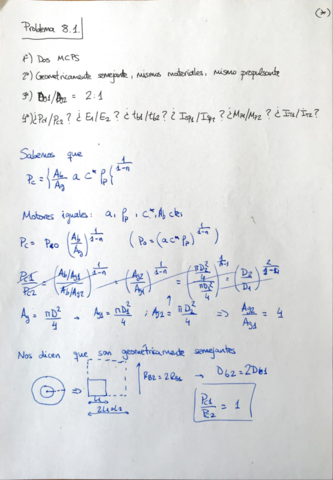 (*)
Problema 8.1.
1º) Dos MCPS
2º) Geometricamente semejante, mismos materiales, mismo propulsante
3º) D01/D02 = 2:1
4º) ¿Pc1/Pc2? ¿E1/E2? ¿tb1/tb2? ¿Isp1/Isp2? ¿Mp1/Mp2? ¿IT1/IT2?
Sabemos que
Pc = {Ab/Ag a c* ρp}^1/(1-n)
Motores iguales: a, ρp, c*, Ab cte;
Pc = P00 (Ab/Ag)^1/(1-n) (P0 = (a c* ρp)^1/(1-n))
Pc1/Pc2 = (Ab/Ag1)^1/(1-n) / (Ab/Ag2)^1/(1-n) = (Ag2/Ag1)^1/(1-n) = (πD2²/4 / πD1²/4)^1/(1-n) = (D2/D1)^2/(1-n)
Ag = πD²/4 → Ag1 = πD1²/4 ; Ag2 = πD2²/4 ⇒ Ag2/Ag1 = 4
Nos dicen que son geométricamente semejantes
⇒ RB2 = 2RB1 → Db2 = 2Db1
L1
2L1=L2
Pc1/Pc2 = 1